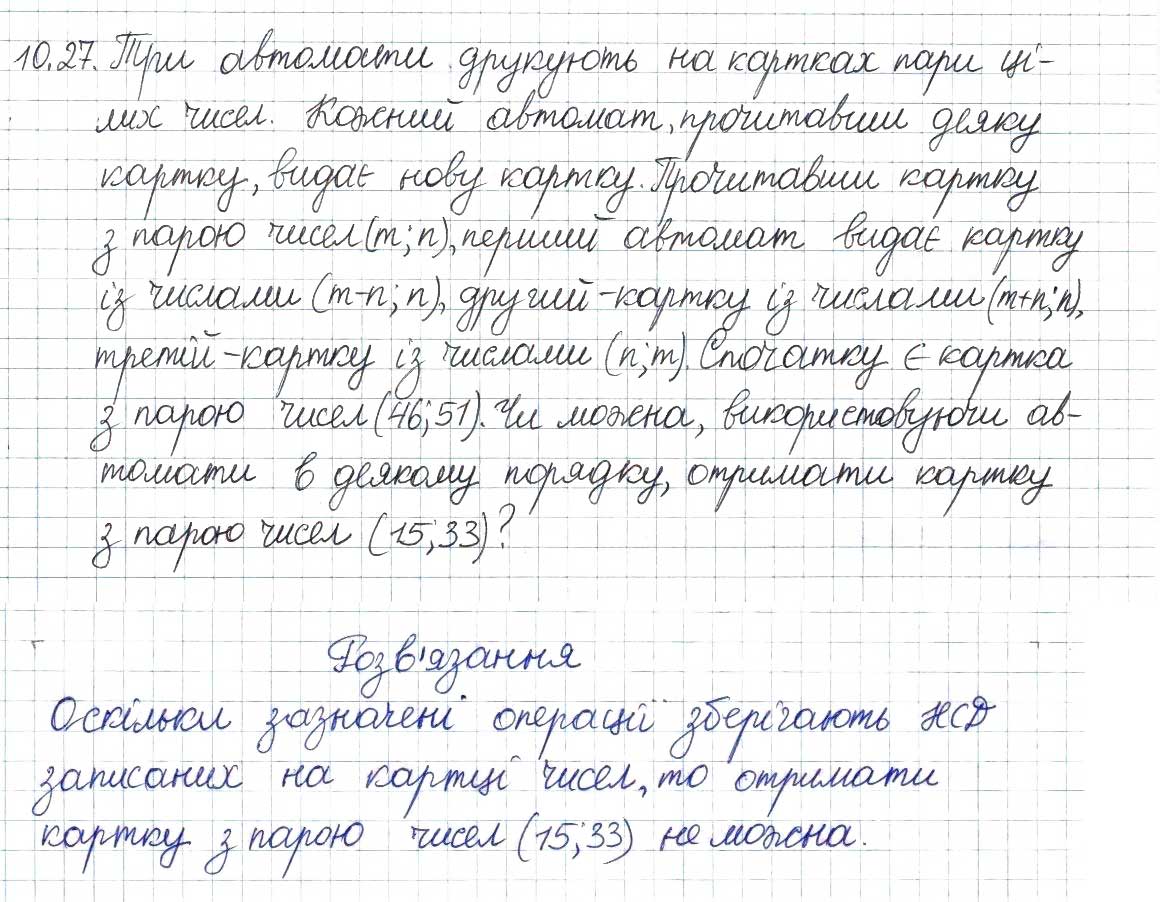 10.27. Три автомати друкують на картках пари ці-
лих чисел. Кожний автомат, прочитавши деяку
картку, видає нову картку. Прочитавши картку
з парою чисел (m; n), перший автомат видає картку
із числами (m-n; n), другий - картку із числами (m+n; n),
третій - картку із числами (n; m). Спочатку є картка
з парою чисел (46; 51). Чи можна, використовуючи ав-
томати в деякому порядку, отримати картку
з парою чисел (15; 33)?
Розв'язання
Оскільки зазначені операції зберігають НСД
записаних на картці чисел, то отримати
картку з парою чисел (15; 33) не можна.